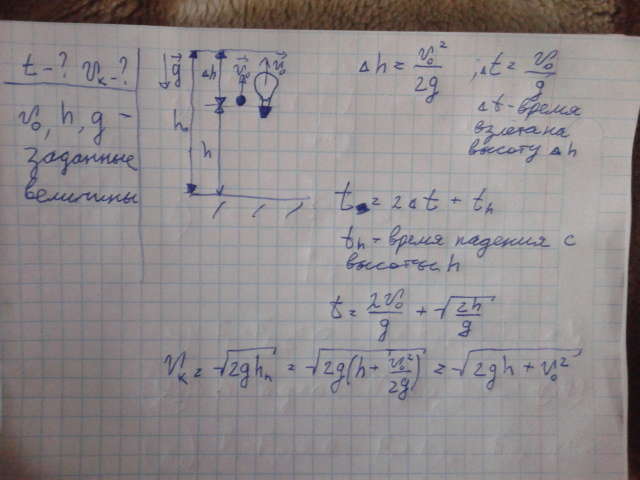 t-? vₖ-?
v₀, h, g -
заданные
величины
g
Δh
v₀
v₀
h
Δh = v₀²/2g ; Δt = v₀/g
Δt - время
взлёта на
высоту Δh
t = 2Δt + tₕ
tₕ - время падения с
высоты h
t = 2v₀/g + √(2h/g)
vₖ = √(2ghₙ) = √(2g(h + v₀²/2g)) = √(2gh + v₀²)